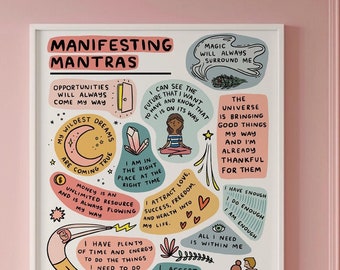 MANIFESTING
MANTRAS
MAGIC
WILL ALWAYS
SURROUND ME
OPPORTUNITIES
WILL ALWAYS
COME MY WAY
I CAN SEE THE
FUTURE THAT I WANT
TO HAVE AND KNOW THAT
IT IS ON ITS WAY
THE
UNIVERSE
IS BRINGING
GOOD THINGS
MY WAY
AND I'M
ALREADY
THANKFUL
FOR THEM
MY WILDEST DREAMS
ARE COMING TRUE
I AM IN
THE RIGHT
PLACE AT THE
RIGHT TIME
MONEY IS AN
UNLIMITED RESOURCE
AND IS ALWAYS FLOWING
MY WAY
I ATTRACT LOVE,
SUCCESS, FREEDOM,
AND HEALTH INTO
MY LIFE.
I HAVE ENOUGH
I DO ENOUGH
I AM ENOUGH
I HAVE PLENTY
OF TIME AND ENERGY
TO DO THE THINGS
I NEED TO DO
ALL I NEED
IS WITHIN ME
I ACCEPT